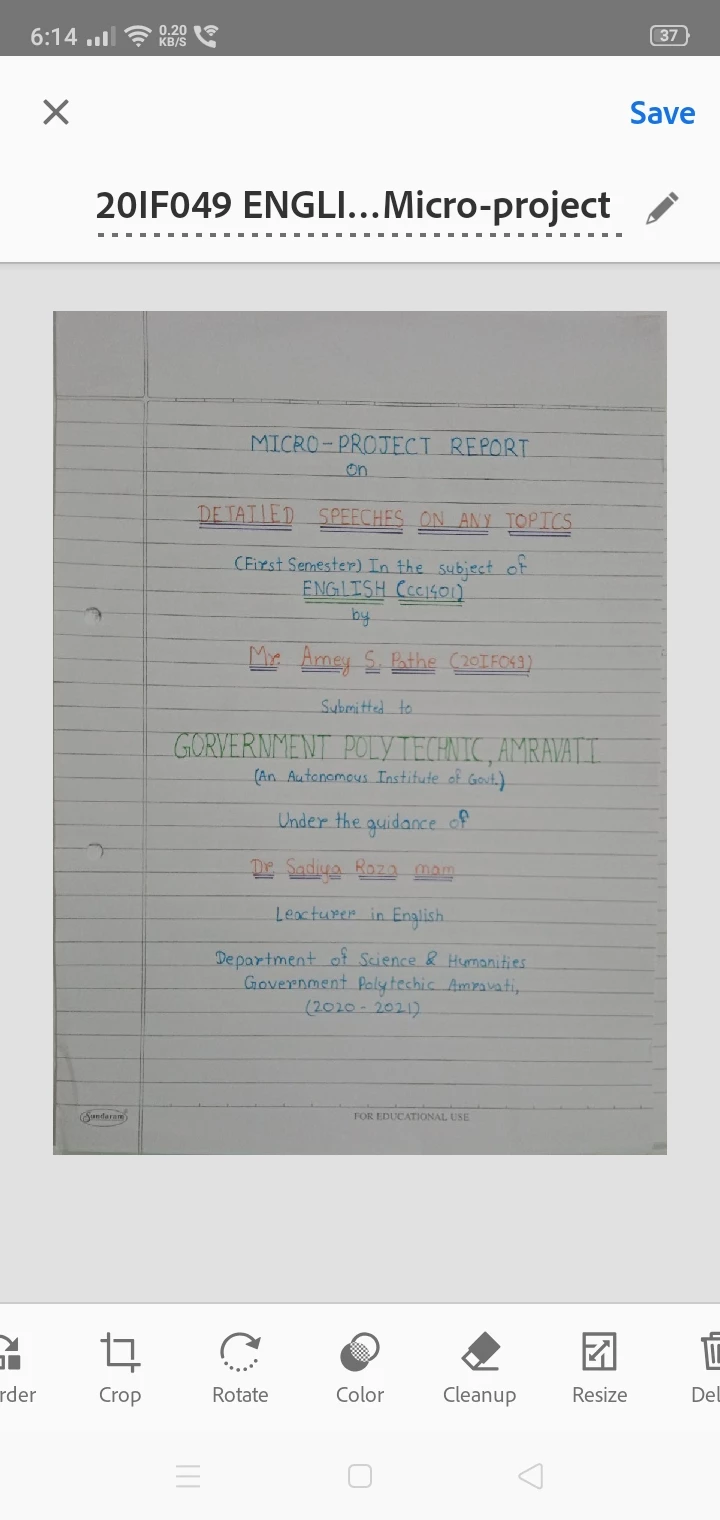 6:14
0.20
KB/S
37
Save
20IF049 ENGLI...Micro-project
MICRO-PROJECT REPORT
on
DETAILED SPEECHES ON ANY TOPICS
(First Semester) In the subject of
ENGLISH (CC1401)
by
Mr. Amey S. Pathe (20IF049)
Submitted to
GORVERNMENT POLYTECHNIC, AMRAVATI
(An Autonomous Institute of Govt.)
Under the guidance of
Dr Sadiya Raza mam
Leacturer in English
Department of Science & Humanities
Government Polytechic Amravati,
(2020-2021)
Sundaram
FOR EDUCATIONAL USE
rder
Crop
Rotate
Color
Cleanup
Resize
Del